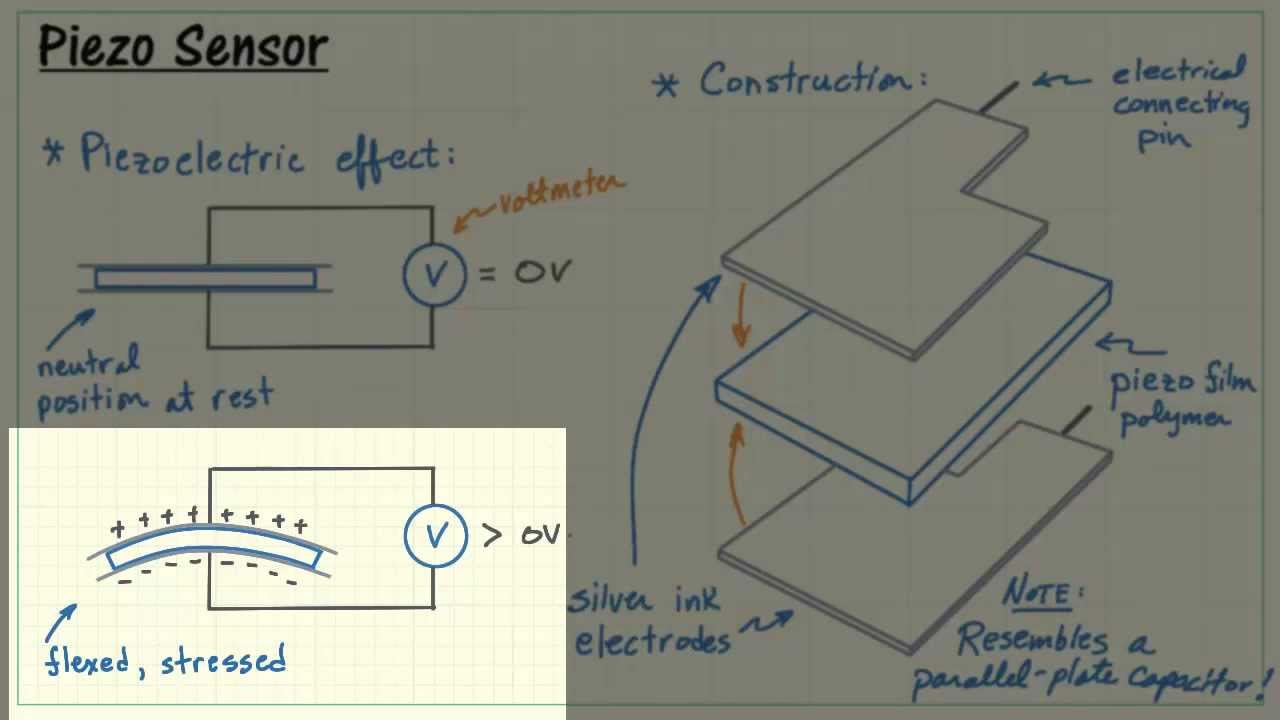 Piezo Sensor
* Piezoelectric effect:
voltmeter
V = 0V
neutral
position at rest
+ + + + + + + +
V > 0V
- - - - - - - -
flexed, stressed
* Construction:
electrical
connecting
pin
piezo film
polymer
silver ink
electrodes
NOTE:
Resembles a
parallel-plate capacitor!